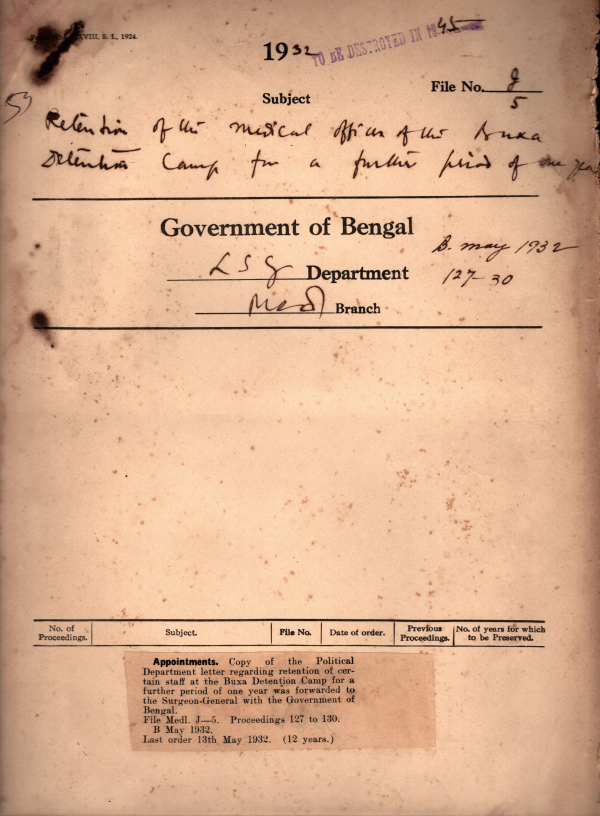 XVIII, S. I., 1924.
1932
TO BE DESTROYED IN 1945
File No. J/5
Subject
53
Retention of the medical officer of the Buxa
Detention Camp for a further period of one year
Government of Bengal
B. May 1932
L S G Department
127-30
Medl Branch
No. of Proceedings.
Subject.
File No.
Date of order.
Previous Proceedings.
No. of years for which to be Preserved.
Appointments. Copy of the Political
Department letter regarding retention of cer-
tain staff at the Buxa Detention Camp for a
further period of one year was forwarded to
the Surgeon-General with the Government of
Bengal.
File Medl. J—5. Proceedings 127 to 130.
B May 1932.
Last order 13th May 1932. (12 years.)